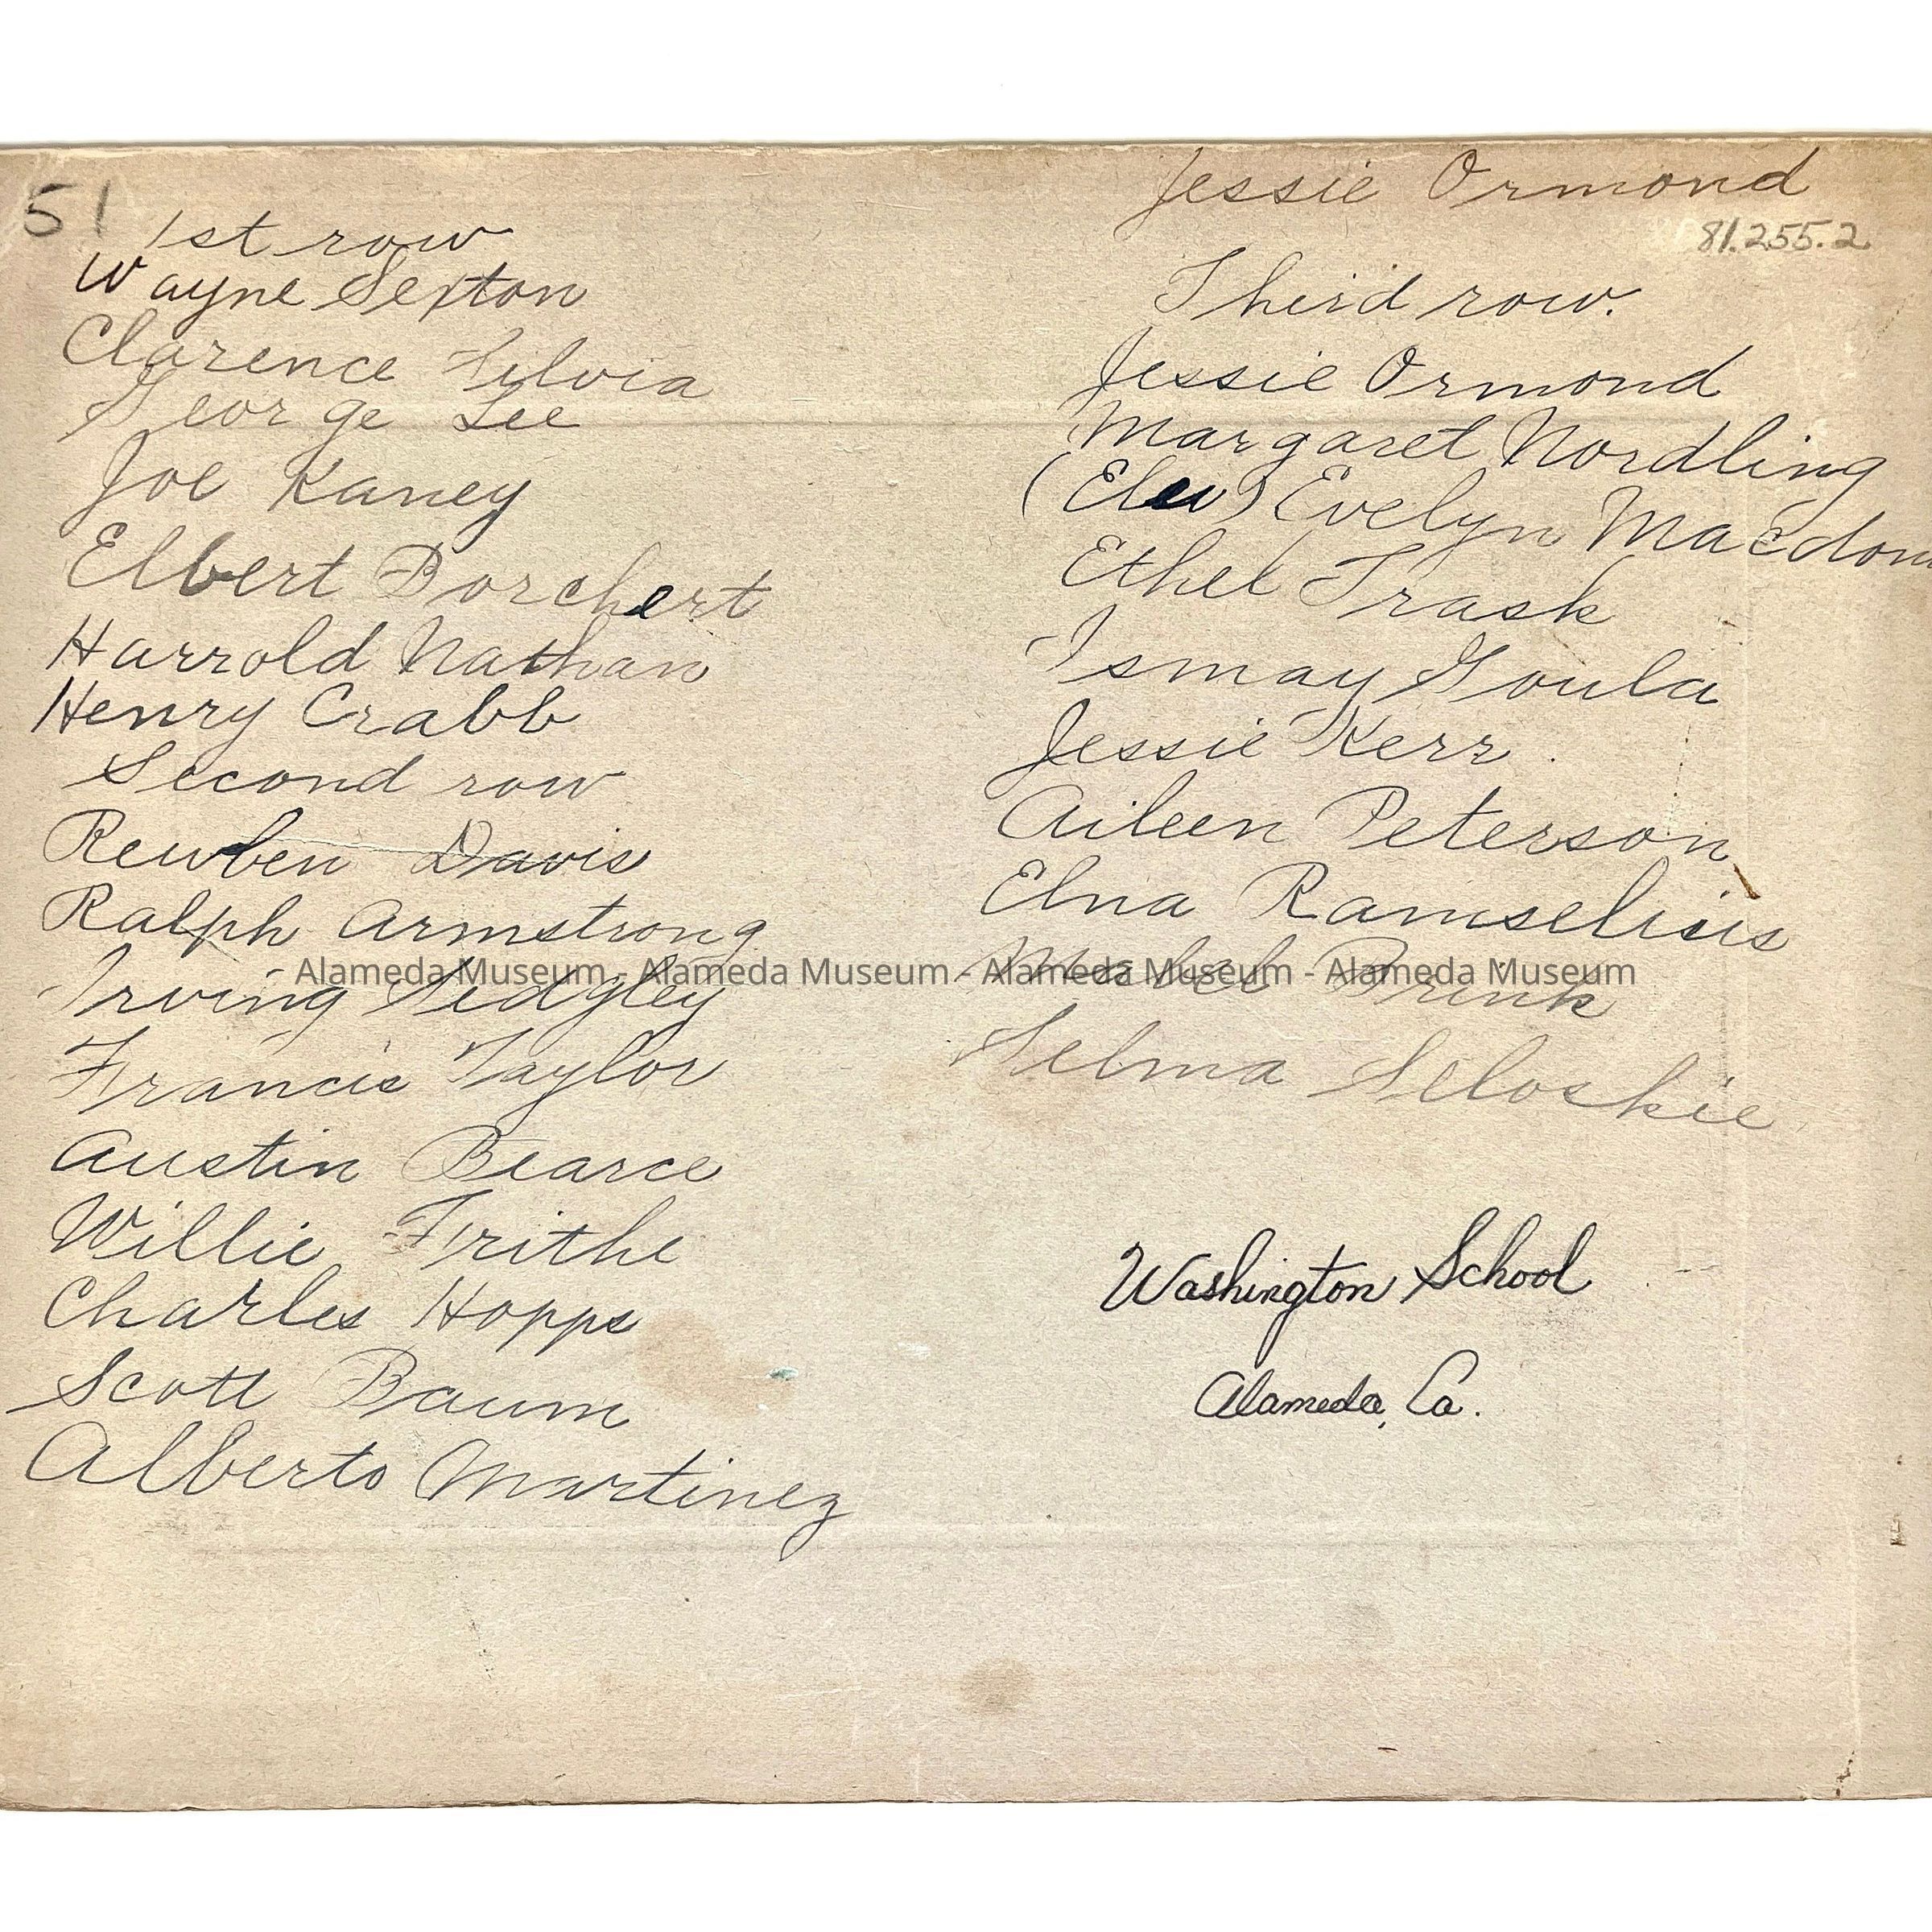 51
1st row
Wayne Sexton
Clarence Silvia
George Lee
Joe Kaney
Elbert Borchert
Harrold Nathan
Henry Crabb
Second row
Reuben Davis
Ralph Armstrong
Irving Sedgley
Francis Taylor
Austin Bearce
Willie Frithe
Charles Hopps
Scott Baum
Alberto Martinez
Jessie Ormond
81.255.2
Third row.
Jessie Ormond
Margaret Nordling
Evelyn Macdon
Ethel Trask
Ismay Goula
Jessie Kerr.
Aileen Peterson
Elna Ramselius
Mabel Brink
Selma Seloskie
Washington School
Alameda, Ca.
Alameda Museum - Alameda Museum - Alameda Museum - Alameda Museum